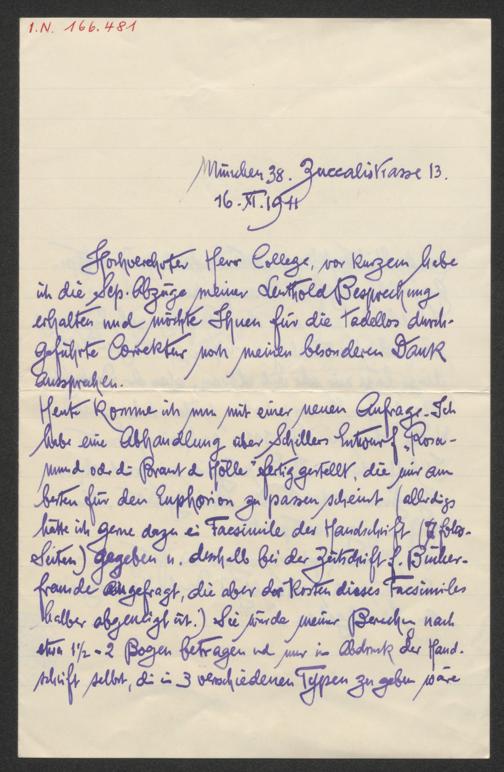 I.N. 166.481
München 38. Zuccalistrasse 13.
16. XI. 1911
Hochverehrter Herr College, vor kurzem habe
ich die Sep. Abzüge meiner Leuthold Besprechung
erhalten und möchte Ihnen für die tadellos durch-
geführte Correktur noch meinen besonderen Dank
aussprechen.
Heute komme ich nun mit einer neuen Anfrage. Ich
habe eine Abhandlung über Schillers Entwurf „Rosa-
mund oder die Braut d Hölle" fertig gestellt, die mir am
besten für den Euphorion zu passen scheint (allerdigs
hätte ich gerne dazu ei Facsimile der Handschrift (7 folio-
Seiten) gegeben u. deshalb bei der Zeitschrift f. Bücher-
freunde angefragt, die aber der Kosten dieses Facsimiles
halber abgeneigt ist.) Sie würde meiner Berechng nach
etwa 1½ - 2 Bogen betragen und nur im Abdruck der Hand-
schrift selbst, die in 3 verschiedenen Typen zu geben wäre